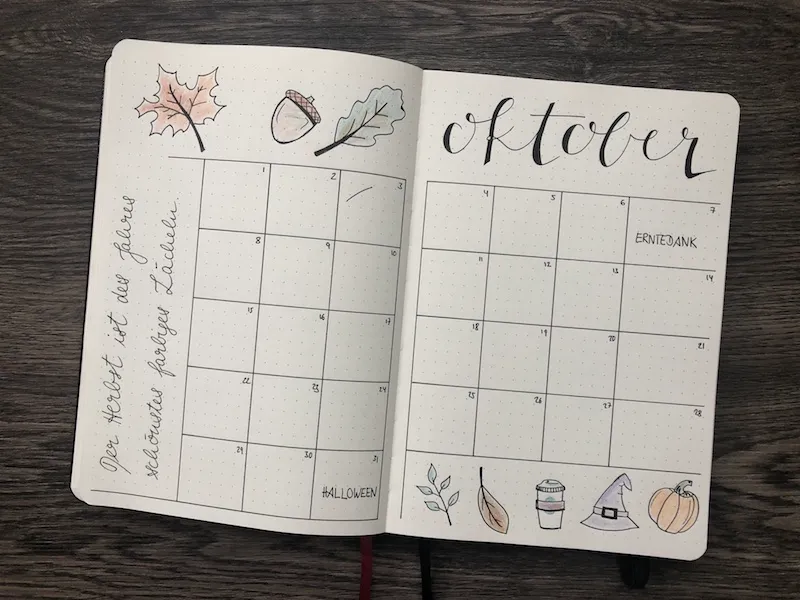 oktober
Der Herbst ist des Jahres
schönstes farbiges Lächeln.
1 2 3 4 5 6 7
ERNTEDANK
8 9 10 11 12 13 14
15 16 17 18 19 20 21
22 23 24 25 26 27 28
29 30 31
HALLOWEEN